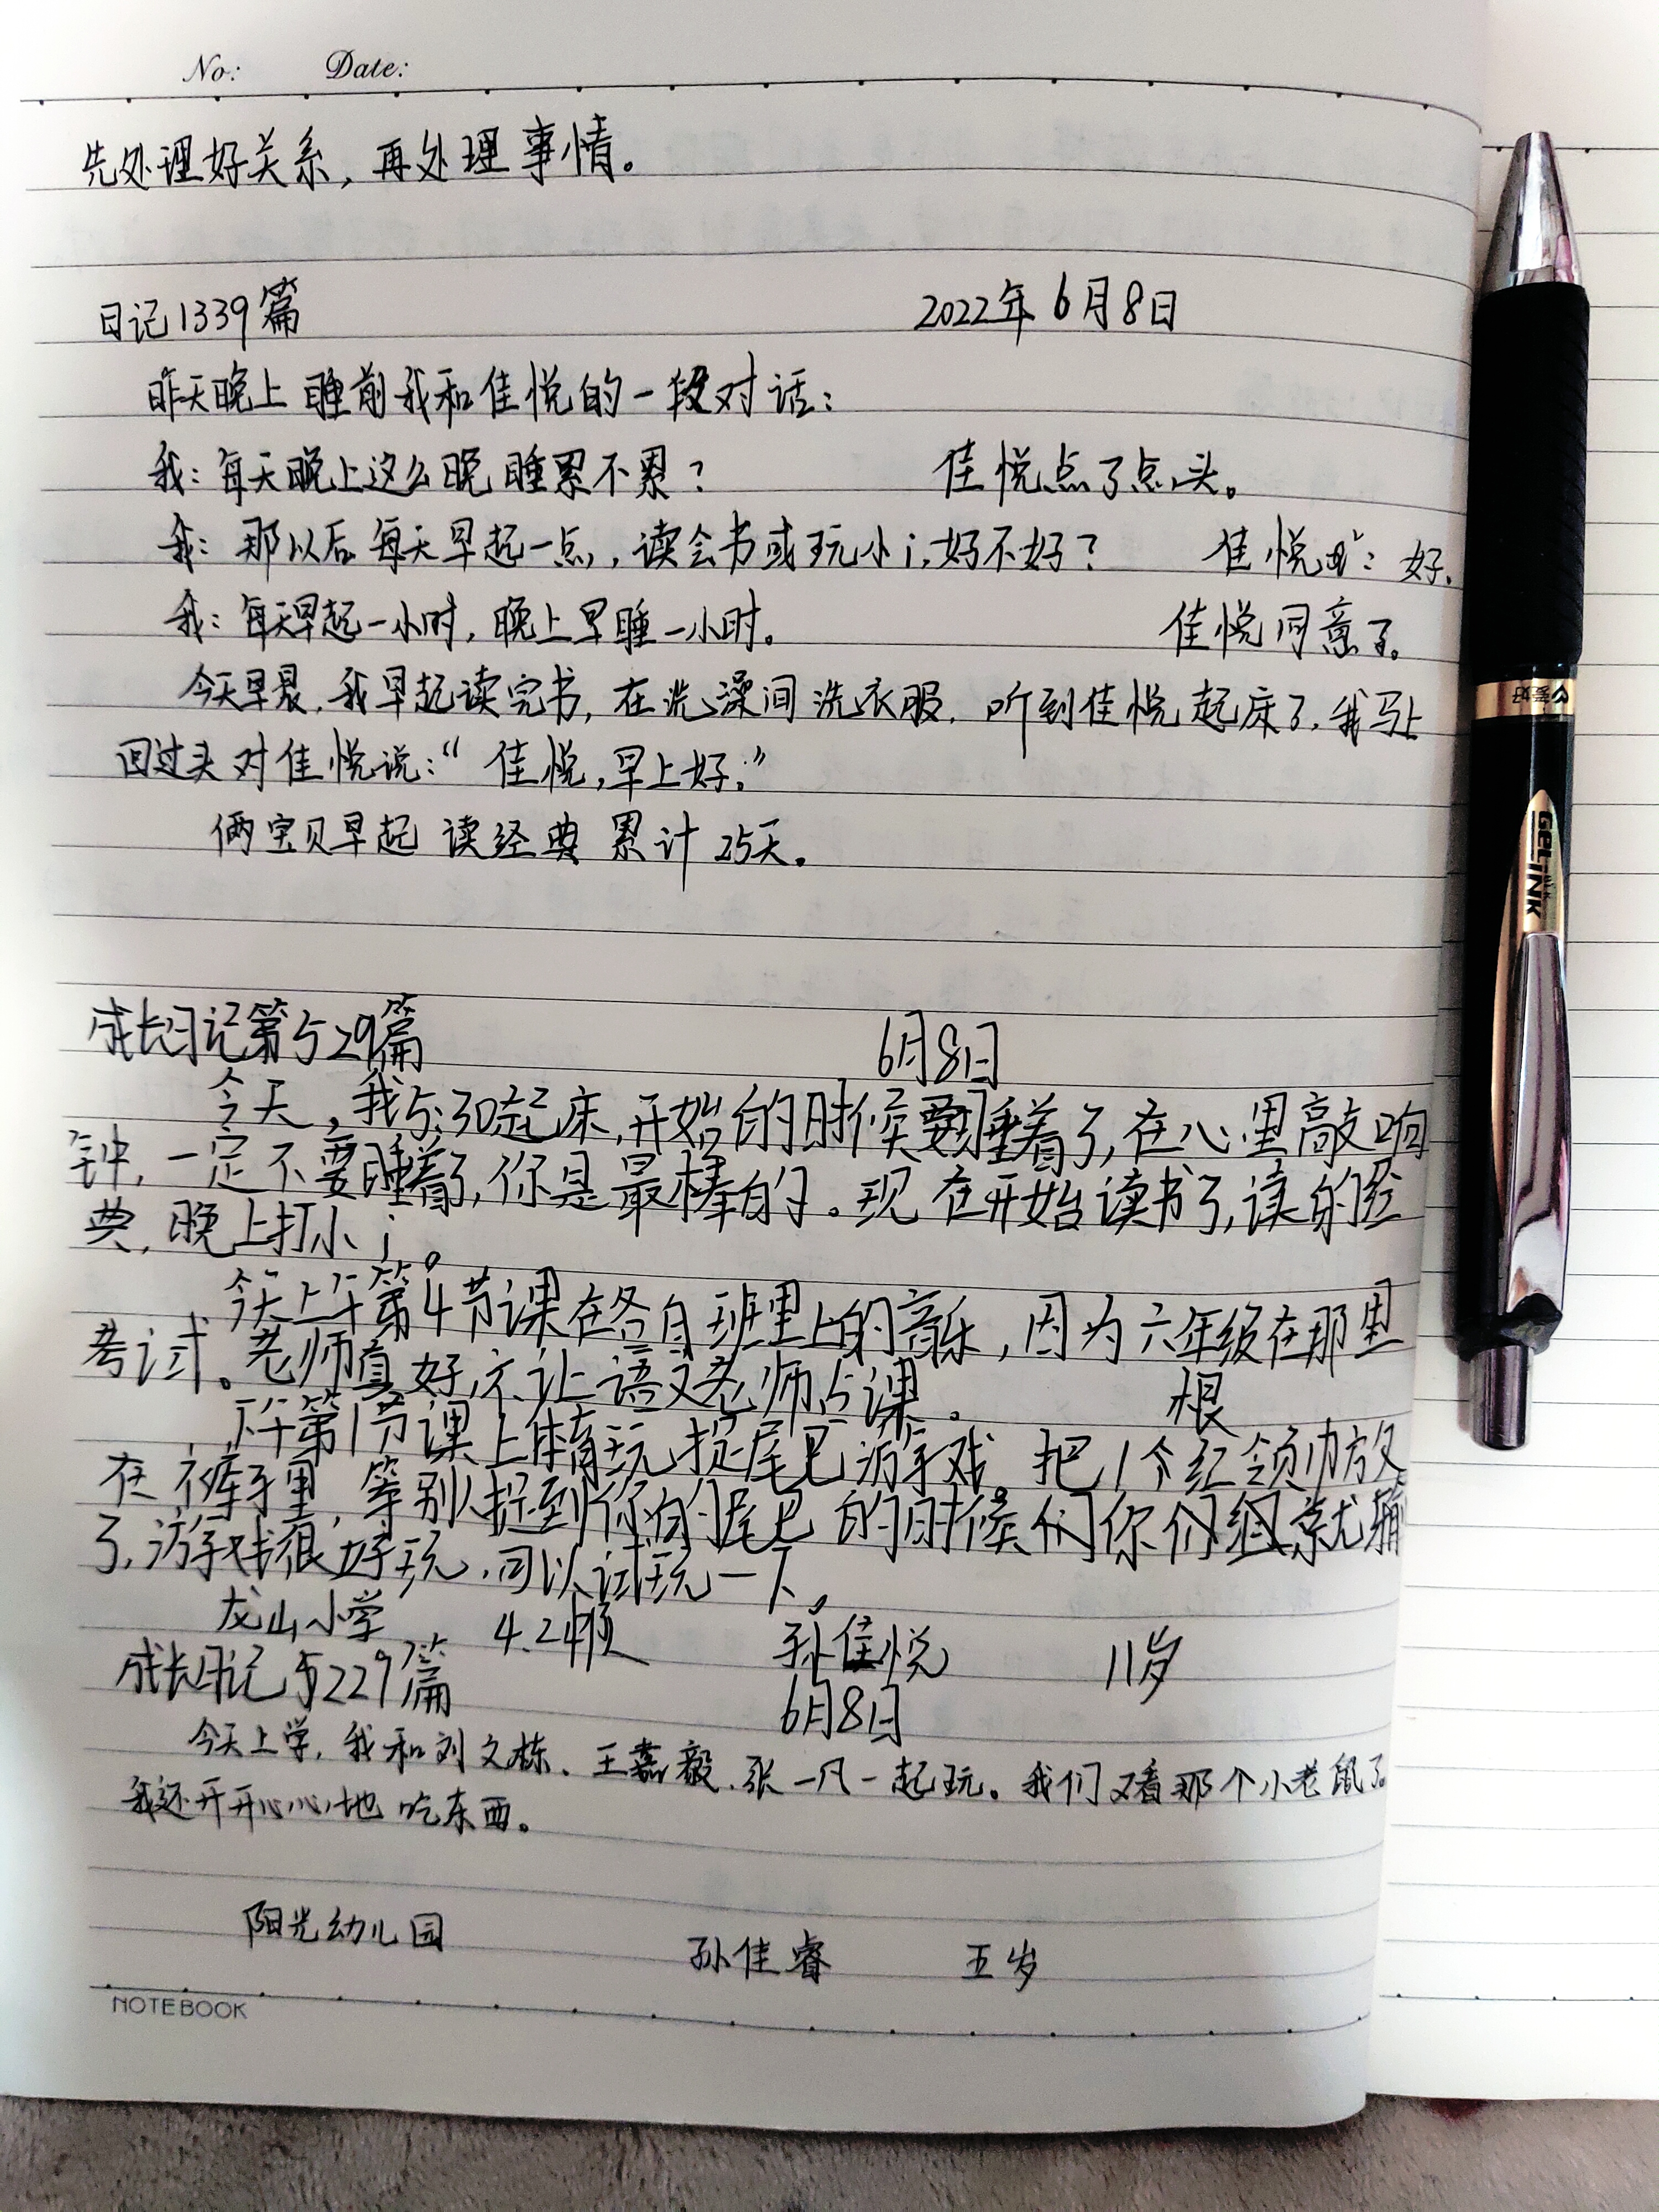 No: Date:
先处理好关系，再处理事情。
日记1339篇 2022年6月8日
昨天晚上睡前我和佳悦的一段对话：
我：每天晚上这么晚睡累不累？ 佳悦点了点头。
我：那以后每天早起一点，读会书或玩小i，好不好？ 佳悦：好。
我：每天早起一小时，晚上早睡一小时。 佳悦同意了。
今天早晨，我早起读完书，在洗澡间洗衣服，听到佳悦起床了，我马上
回过头对佳悦说：“佳悦，早上好。”
俩宝贝早起读经典累计25天。
成长日记第529篇 6月8日
今天，我5:30起床，开始的时候要睡着了，在心里敲响
钟，一定不要睡着了，你是最棒的。现在开始读书了，读的经
典，晚上打小i。
今天上午第4节课在各自班里上的音乐，因为六年级在那里
考试。老师真好，不让语文老师占课。
根
下午第1节课上体育玩捉尾巴游戏，把1个红领巾放
在裤子里，等别人捉到你的尾巴的时候们你们组就输
了，游戏很好玩，可以试玩一下。
龙山小学 4.2 孙佳悦 11岁
成长日记5229篇
6月8日
今天上学，我和刘文栋、王嘉毅、张一凡一起玩。我们又看那个小老鼠了。
我还开开心心地吃东西。
阳光幼儿园 孙佳睿 五岁
NOTEBOOK
爱好
GEL INK